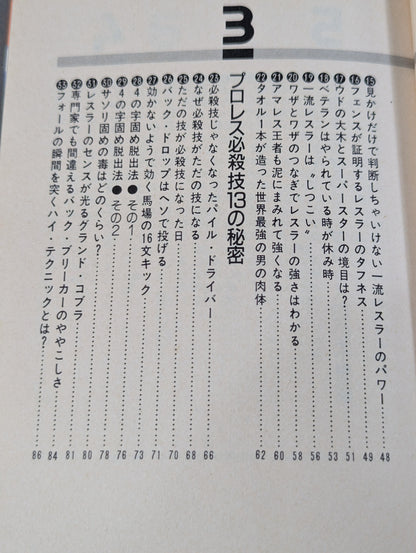 ⑮見かけだけで判断しちゃいけない一流レスラーのパワー……48
⑯フェンスが証明するレスラーのタフネス……49
⑰ウドの大木とスーパースターの境目は？……51
⑱ベテランはやられている時が休み時……53
⑲一流レスラーは〝しつこい〟……56
⑳ワザとワザのつなぎでレスラーの強さはわかる……58
㉑アマレス王者も泥にまみれて強くなる……60
㉒タオル1本が造った世界最強の男の肉体……62
3
プロレス必殺技13の秘密
㉓必殺技じゃなくなったパイル・ドライバー……66
㉔なぜ必殺技がただの技になる……68
㉕ただの技が必殺技になった日……70
㉖バック・ドロップはヘソで投げる……71
㉗効かないようで効く馬場の16文キック……73
㉘4の字固め脱出法●その1……76
㉙4の字固め脱出法●その2……78
㉚サソリ固めの毒はどのくらい？……80
㉛レスラーのセンスが光るグランド・コブラ……81
㉜専門家でも間違えるバック・ブリーカーのややこしさ……84
㉝フォールの瞬間を突くハイ・テクニックとは？……86